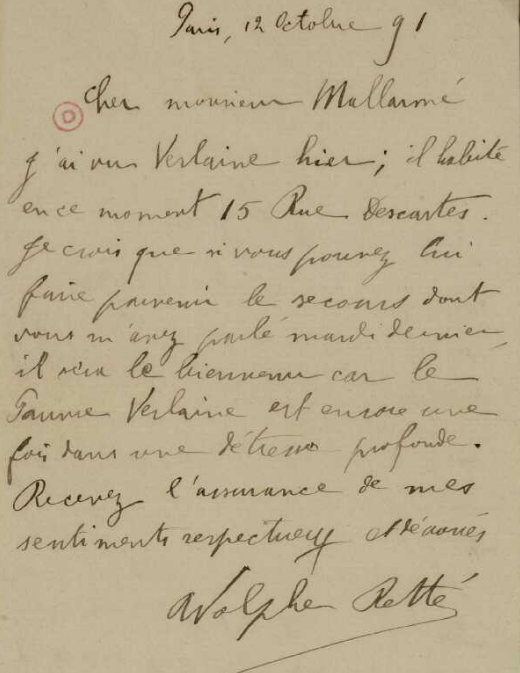 Paris, 12 Octobre 91
Cher monsieur Mallarmé
J'ai vu Verlaine hier ; il habite
en ce moment 15 Rue Descartes.
Je crois que si vous pouvez lui
faire parvenir le secours dont
vous m'avez parlé mardi dernier,
il sera le bienvenu car le
Pauvre Verlaine est encore une
fois dans une détresse profonde.
Recevez l'assurance de mes
sentiments respectueux et dévoués
Adolphe Retté